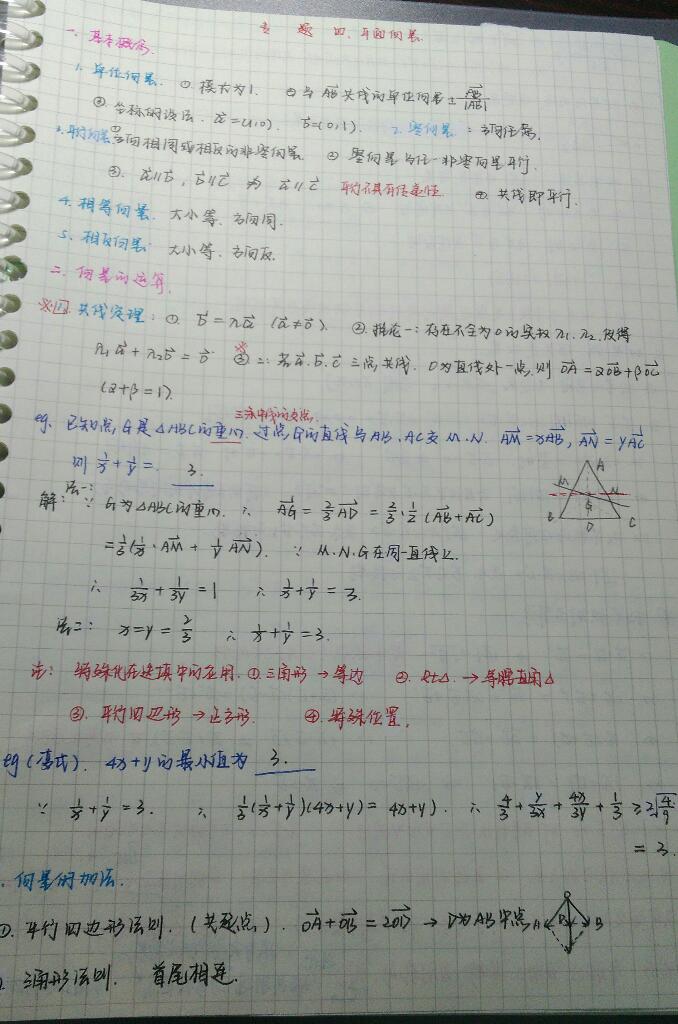 专题四.平面向量.
一.基本概念.
1.单位向量. ①.模长为1. ②与AB共线的单位向量±AB/|AB|
③.坐标的设法. a=(1,0). b=(0,1). 2.零向量:方向任意.
3.平行向量 ①方向相同或相反的非零向量. ②零向量与任一非零向量平行.
③. a∥b, b∥c 为 a∥c 平行不具有传递性 ④.共线即平行.
4.相等向量. 大小等.方向同.
5.相反向量. 大小等.方向反.
二.向量的运算.
※1.共线定理: ①. b=λa (a≠0). ②.推论一:存在不全为0的实数λ1.λ2.使得
λ1a+λ2b=0 ※③二:若a.b.c三点共线. O为直线外一点,则OA=αOB+βOC
(α+β=1).
三条中线的交点.
eg.已知点G是△ABC的重心.过点G的直线与AB.AC交M.N. AM=xAB, AN=yAC
则1/x+1/y= 3.
A M N G B D C
解:法一: ∵G为△ABC的重心. ∴ AG=2/3AD=2/3·1/2(AB+AC)
=1/3(1/x·AM+1/yAN). ∵M.N.G在同一直线上.
∴ 1/3x+1/3y=1 ∴ 1/x+1/y=3.
法二: x=y=2/3 ∴ 1/x+1/y=3.
注: 特殊化在选填中的应用.①.三角形→等边 ②.Rt△.→等腰直角△
③.平行四边形→正方形. ④.特殊位置.
eg(变式). 4x+y的最小值为 3.
∵ 1/x+1/y=3. ∴ 1/3(1/x+1/y)(4x+y)=4x+y). ∴ 4/3+y/3x+4x/3y+1/3≥2√4/9
=3.
.向量的加法.
①.平行四边形法则.(共起点). OA+OB=2OD→D为AB中点
O A D B
.三角形法则. 首尾相连.